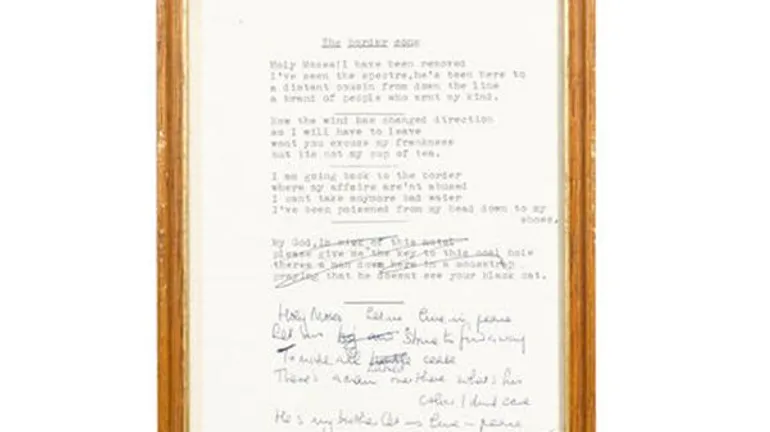 The border song
Holy Moses!I have been removed
I've seen the spectre,he's been here to
a distant cousin from down the line
a brand of people who arnt my kind.
Now the wind has changed direction
as I will have to leave
wont you excuse my frankness
but its not my cup of tea.
I am going back to the border
where my affairs are'nt abused
I cant take anymore bad water
I've been poisoned from my head down to my
shoes.
My God,in sick of this motel
please give me the key to this coal hole
theres a man down here in a mousetrap
praying that he doesnt see your black cat.
Holy Moses Let us live in peace
Let us strive to find away
To make all hatred cease
There's a man over there what's his
colour I dont care
He's my brother let us live in peace